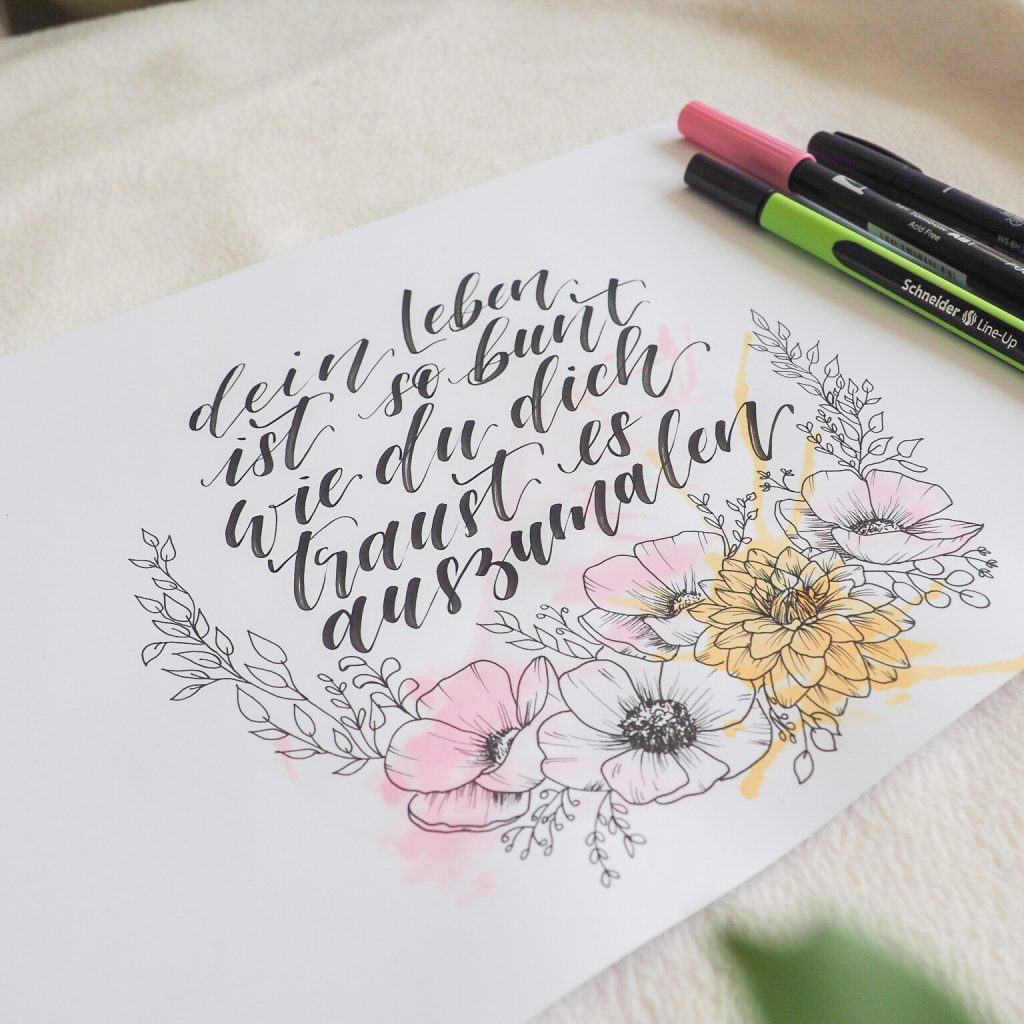 dein Leben
ist so bunt
wie du dich
traust es
auszumalen
Acid Free
Schneider Line-Up